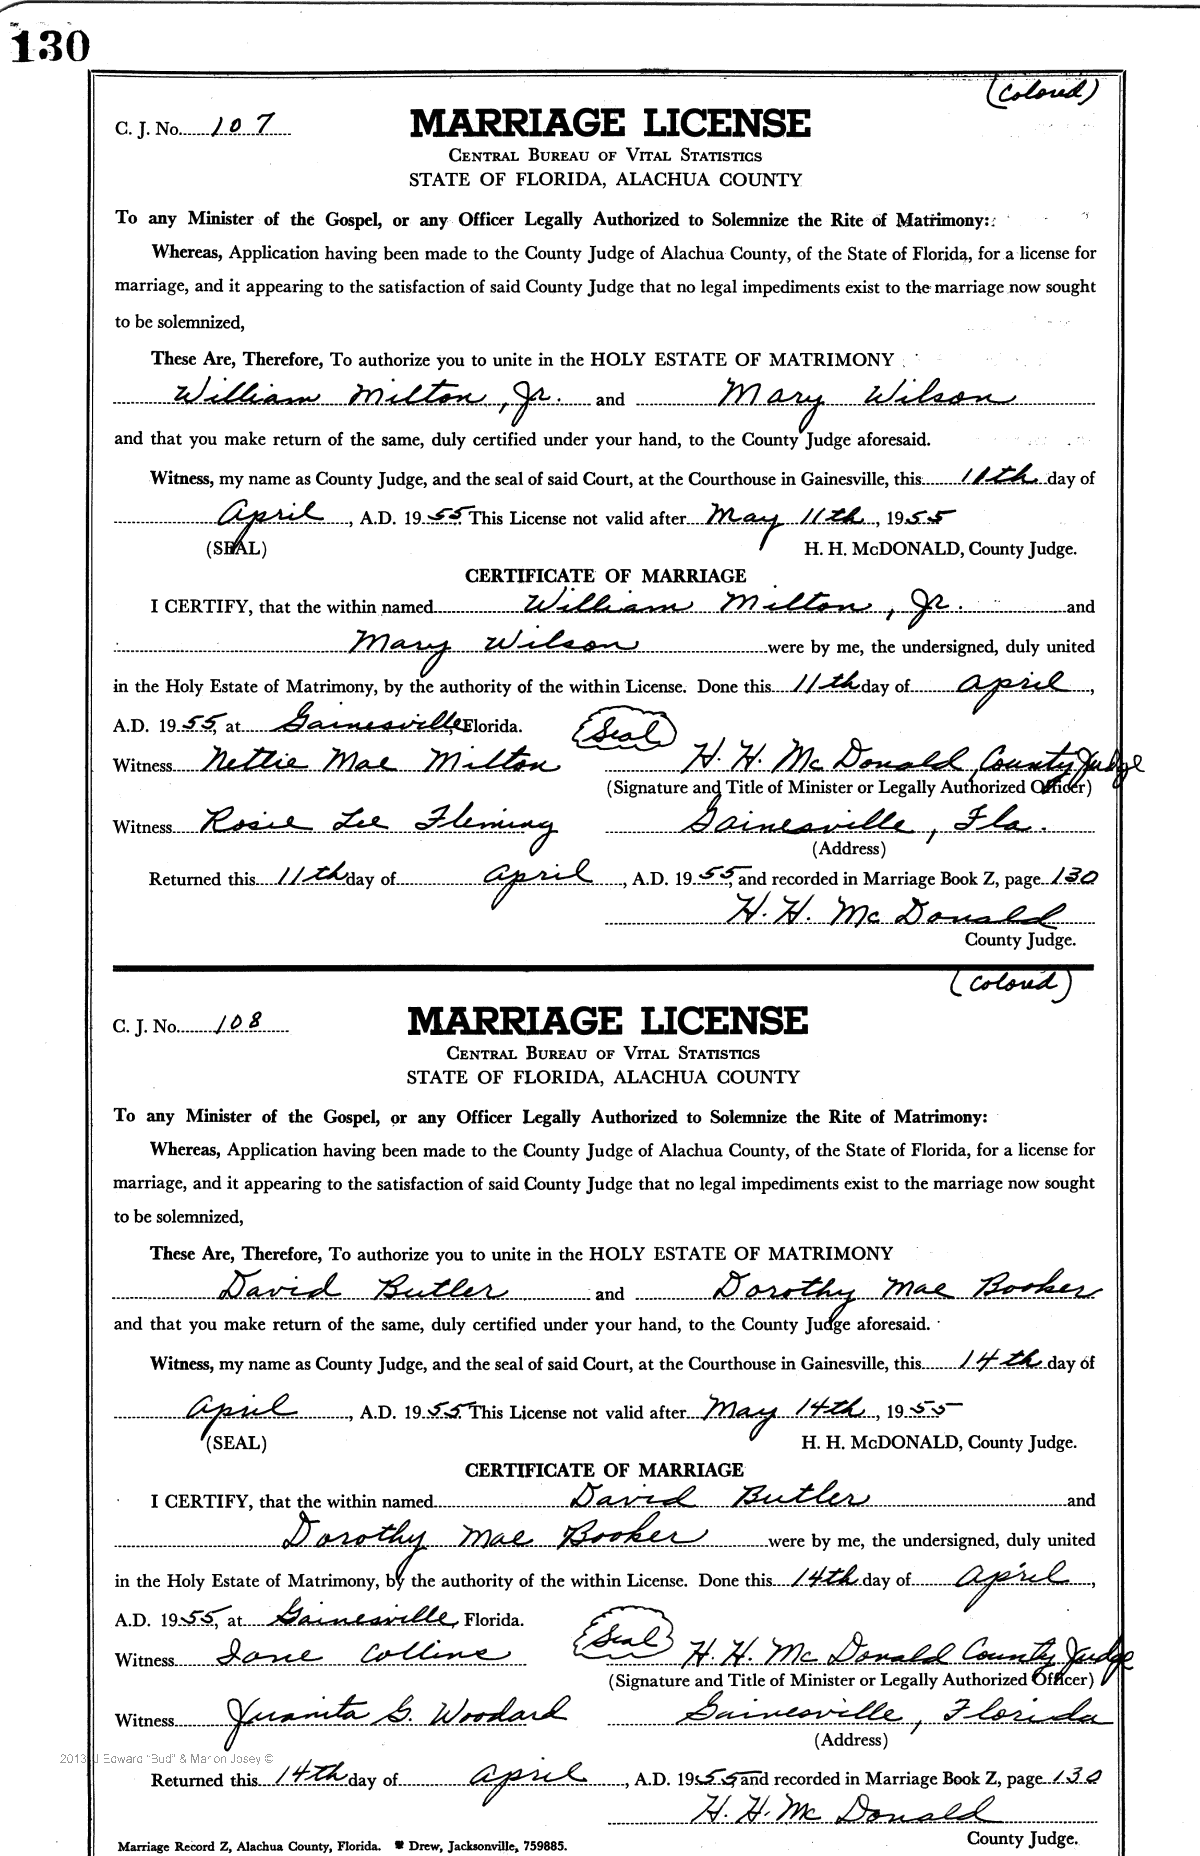 130
(Colored)
C. J. No. 107
MARRIAGE LICENSE
CENTRAL BUREAU OF VITAL STATISTICS
STATE OF FLORIDA, ALACHUA COUNTY
To any Minister of the Gospel, or any Officer Legally Authorized to Solemnize the Rite of Matrimony:
Whereas, Application having been made to the County Judge of Alachua County, of the State of Florida, for a license for
marriage, and it appearing to the satisfaction of said County Judge that no legal impediments exist to the marriage now sought
to be solemnized,
These Are, Therefore, To authorize you to unite in the HOLY ESTATE OF MATRIMONY
William Milton, Jr. and Mary Wilson
and that you make return of the same, duly certified under your hand, to the County Judge aforesaid.
Witness, my name as County Judge, and the seal of said Court, at the Courthouse in Gainesville, this 11th day of
April, A.D. 1955 This License not valid after May 11th, 1955
(SEAL) H. H. McDONALD, County Judge.
CERTIFICATE OF MARRIAGE
I CERTIFY, that the within named William Milton, Jr. and
Mary Wilson were by me, the undersigned, duly united
in the Holy Estate of Matrimony, by the authority of the within License. Done this 11th day of April,
A.D. 1955, at Gainesville, Florida. Seal
Witness Nettie Mae Milton H. H. McDonald, County Judge
(Signature and Title of Minister or Legally Authorized Officer)
Witness Rosie Lee Fleming Gainesville, Fla.
(Address)
Returned this 11th day of April, A.D. 1955, and recorded in Marriage Book Z, page 130
H. H. McDonald
County Judge.
(Colored)
C. J. No. 108
MARRIAGE LICENSE
CENTRAL BUREAU OF VITAL STATISTICS
STATE OF FLORIDA, ALACHUA COUNTY
To any Minister of the Gospel, or any Officer Legally Authorized to Solemnize the Rite of Matrimony:
Whereas, Application having been made to the County Judge of Alachua County, of the State of Florida, for a license for
marriage, and it appearing to the satisfaction of said County Judge that no legal impediments exist to the marriage now sought
to be solemnized,
These Are, Therefore, To authorize you to unite in the HOLY ESTATE OF MATRIMONY
David Butler and Dorothy Mae Booker
and that you make return of the same, duly certified under your hand, to the County Judge aforesaid.
Witness, my name as County Judge, and the seal of said Court, at the Courthouse in Gainesville, this 14th day of
April, A.D. 1955 This License not valid after May 14th, 1955
(SEAL) H. H. McDONALD, County Judge.
CERTIFICATE OF MARRIAGE
I CERTIFY, that the within named David Butler and
Dorothy Mae Booker were by me, the undersigned, duly united
in the Holy Estate of Matrimony, by the authority of the within License. Done this 14th day of April,
A.D. 1955, at Gainesville, Florida. Seal
Witness Jane Collins H. H. McDonald County Judge
(Signature and Title of Minister or Legally Authorized Officer)
Witness Juanita G. Woodard Gainesville, Florida
(Address)
2013 J Edward "Bud" & Marion Josey ©
Returned this 14th day of April, A.D. 1955 and recorded in Marriage Book Z, page 130
H. H. McDonald
County Judge.
Marriage Record Z, Alachua County, Florida. Drew, Jacksonville, 759885.